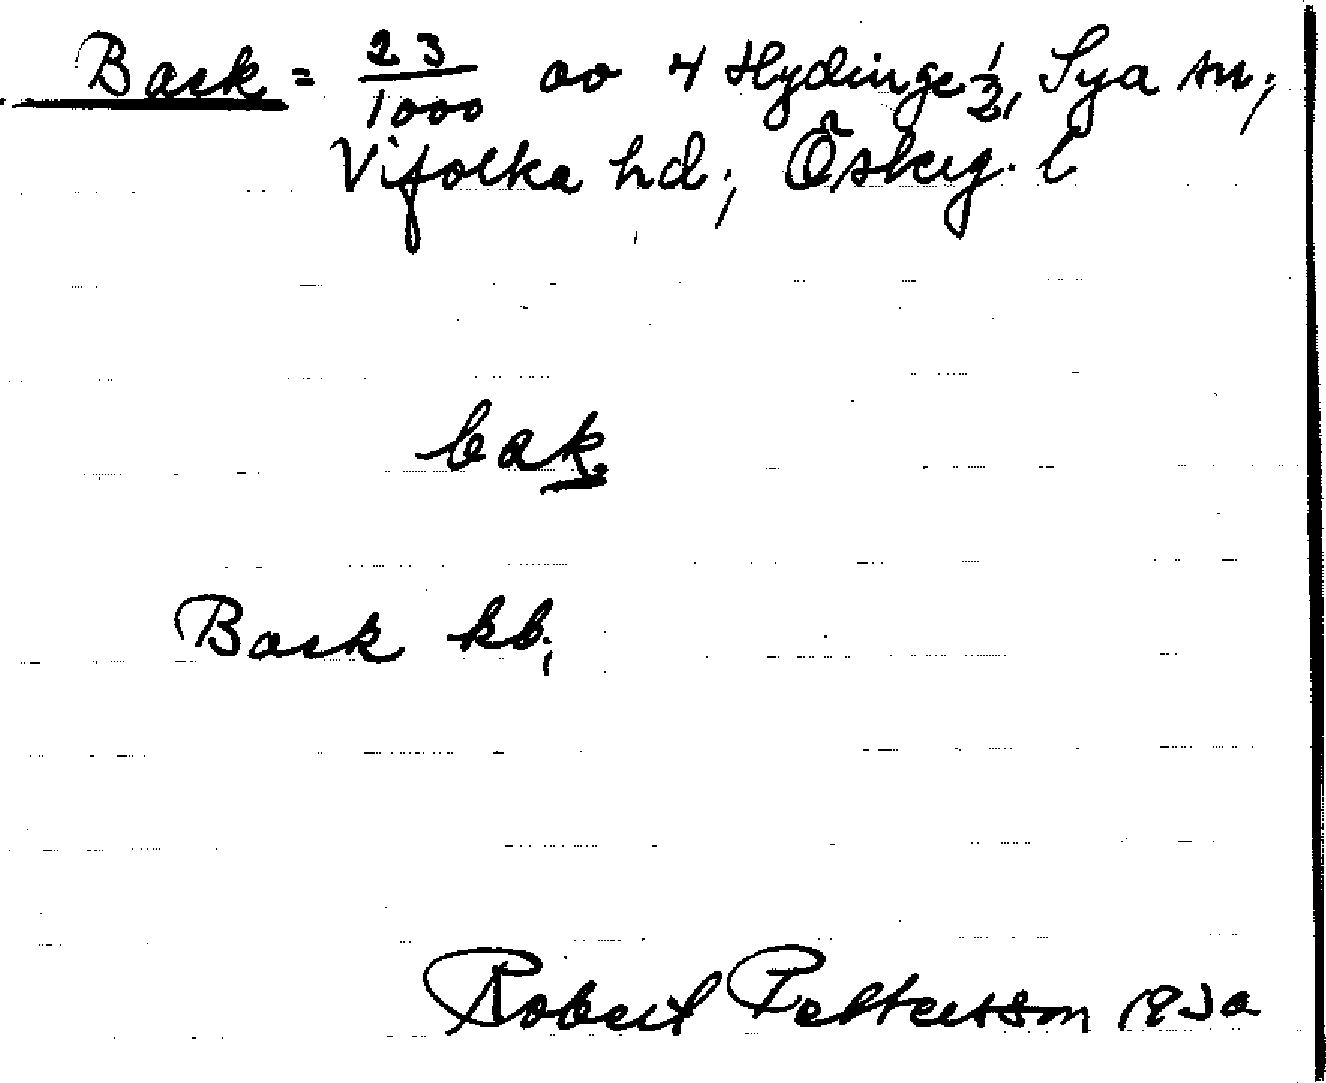 Back = 23/1000 av 4 Hydinge 1/2, Sya sn,
Vifolka hd, Östерg. l
bak
Back kb,
Robert Petterson